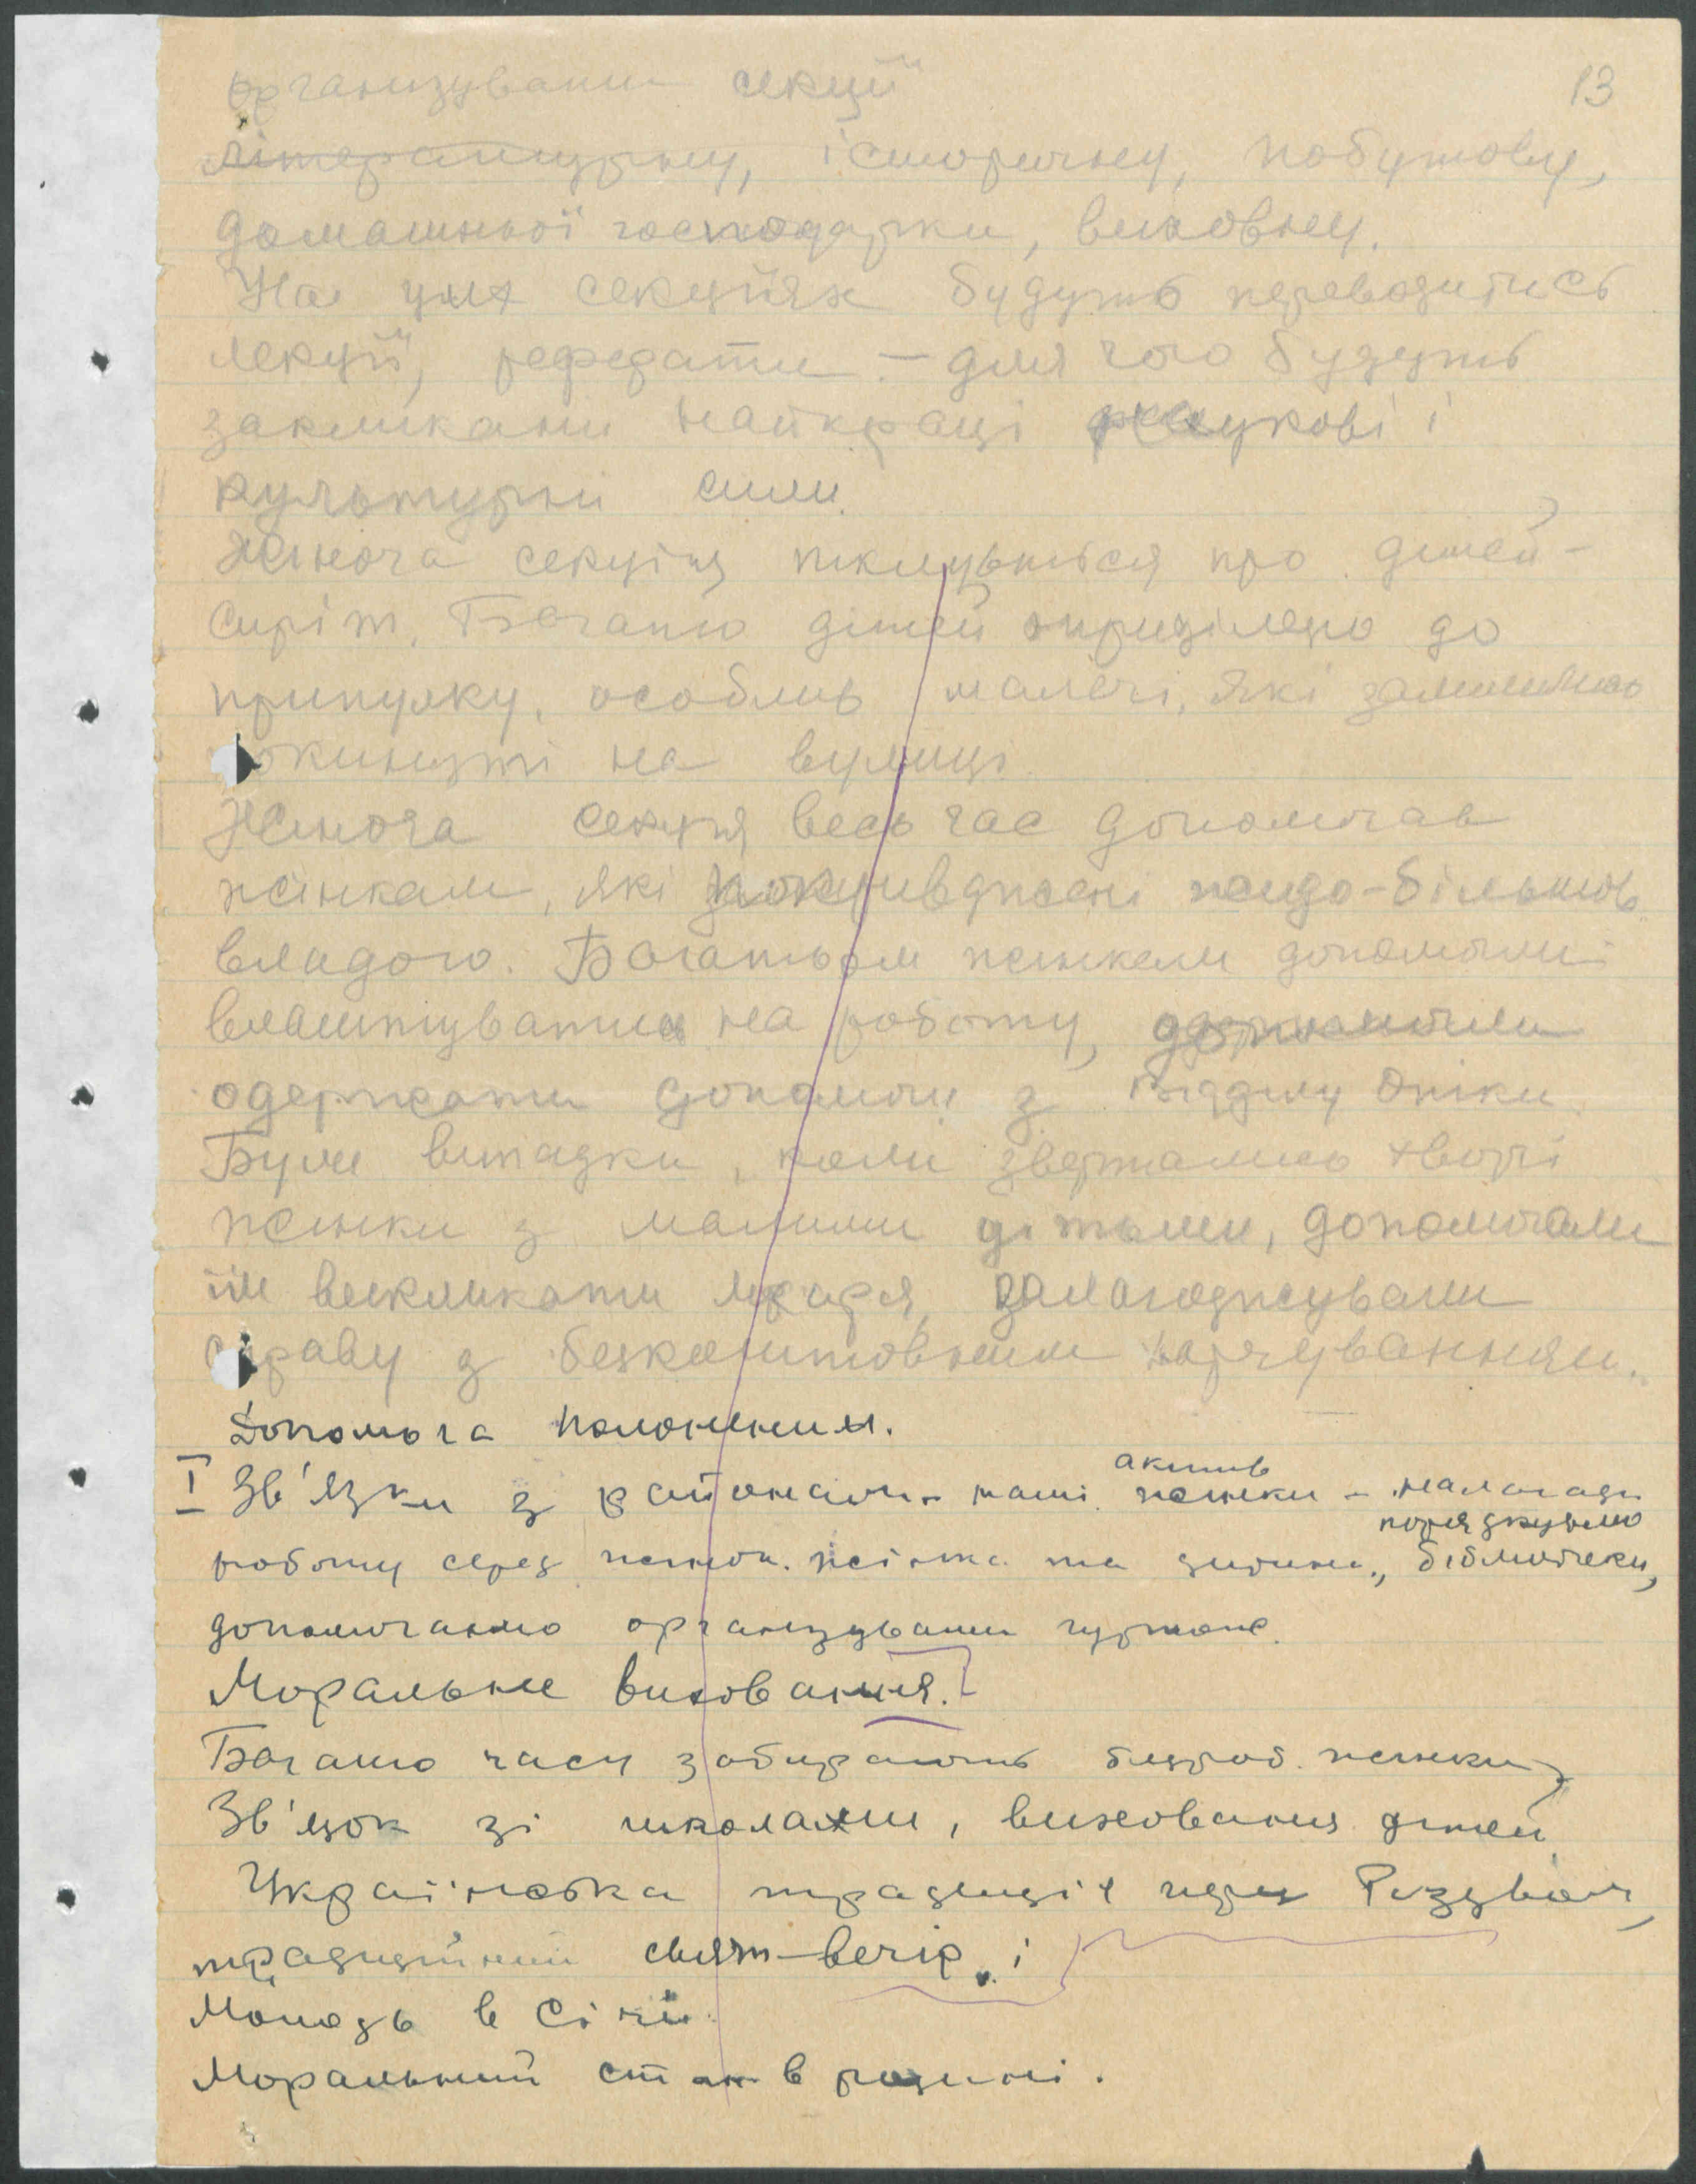 13
організувати секції
літературну, історичну, побутову,
домашньої господарки, виховну.
На цих секціях будуть переводитись
лекції, реферати – для чого будуть
закликани найкращі наукові і
культурні сили.
Жіноча секція піклується про дітей-
сиріт. Багато дітей приділено до
припулку, особлив малечі, які залишились
покинуті на вулиці.
Жіноча секція весь час допомагає
жінкам, які покривджені жидо-більшов.
владою. Багатьом жінкам допомогли
влаштуватися на роботу,
одержати допомогу з Відділу Опіки.
Були випадки, коли звертались хворі
жінки з малими дітьми, допомагали
їм викликати лікаря, залагоджували
справу з безкоштовним харчуванням.
Допомога полоненим.
I Зв'язки з районами наші жінки актив – налагодж
роботу серед жінок. жінка та дитина, порядкуємо бібліотеки,
допомагаємо організувати гуртки.
Моральне виховання.
Багато часу забирають безроб. жінки,
Зв'язок зі школами, виховання дітей
Українська традиція через Різдво,
традиційний свят-вечір і
Молодь в Січі.
Моральний стан в родині.